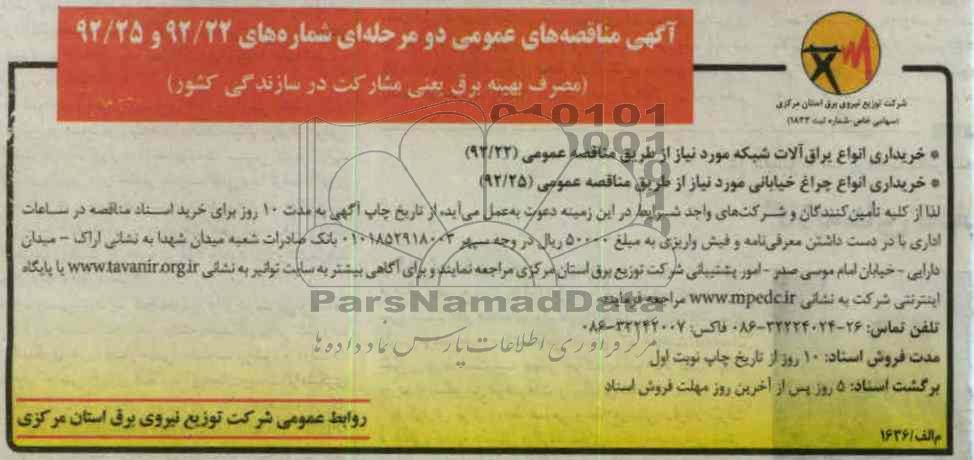 آگهی مناقصه‌های عمومی دو مرحله‌ای شماره‌های ۹۲/۲۲ و ۹۲/۲۵
(مصرف بهینه برق یعنی مشارکت در سازندگی کشور)
شرکت توزیع نیروی برق استان مرکزی
(سهامی خاص-شماره ثبت ۱۸۲۳)
* خریداری انواع یراق‌آلات شبکه مورد نیاز از طریق مناقصه عمومی (۹۲/۲۲)
* خریداری انواع چراغ خیابانی مورد نیاز از طریق مناقصه عمومی (۹۲/۲۵)
لذا از کلیه تأمین‌کنندگان و شرکت‌های واجد شرایط در این زمینه دعوت به‌عمل می‌آید، از تاریخ چاپ آگهی به مدت ۱۰ روز برای خرید اسناد مناقصه در ساعات
اداری با در دست داشتن معرفی‌نامه و فیش واریزی به مبلغ ۵۰۰۰۰ ریال در وجه سپهر ۰۱۰۱۸۵۲۹۱۸۰۰۳ بانک صادرات شعبه میدان شهدا به نشانی اراک - میدان
دارایی - خیابان امام موسی صدر - امور پشتیبانی شرکت توزیع برق استان مرکزی مراجعه نمایند و برای آگاهی بیشتر به سایت توانیر به نشانی www.tavanir.org.ir یا پایگاه
اینترنتی شرکت به نشانی www.mpedc.ir مراجعه فرمایند.
تلفن تماس: ۲۶-۳۲۲۲۴۰۲۴-۰۸۶ فاکس: ۳۲۲۴۲۰۰۷-۰۸۶
مدت فروش اسناد: ۱۰ روز از تاریخ چاپ نوبت اول
برگشت اسناد: ۵ روز پس از آخرین روز مهلت فروش اسناد
روابط عمومی شرکت توزیع نیروی برق استان مرکزی
م‌الف/۱۶۳۶
ParsNamadData
مرکز فرآوری اطلاعات پارس نماد داده‌ها